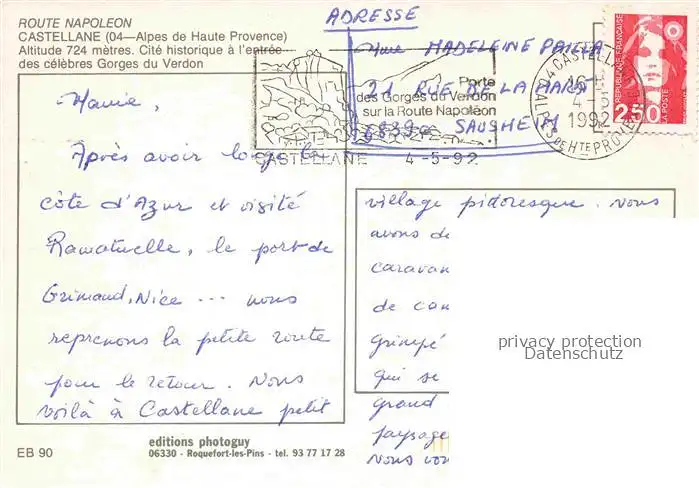 ROUTE NAPOLEON
CASTELLANE (04—Alpes de Haute Provence)
Altitude 724 mètres. Cité historique à l'entrée
des célèbres Gorges du Verdon
ADRESSE
Mme MADELEINE
21 RUE DE LA
SAUSHEIM
Porte
des Gorges du Verdon
sur la Route Napoléon
CASTELLANE 4-5-92
04 CASTELLANE
16 H
4-5
1992
ALPES DE HTE PROVENCE
REPUBLIQUE FRANÇAISE
2,50
LA POSTE
Mamie,
Après avoir longé la
côte d'Azur et visité
Ramatuelle, le port de
Grimaud, Nice ... nous
reprenons la petite route
pour le retour. Nous
voilà à Castellane petit
village pittoresque. Nous
avons de
caravan
de
grimpé
qui se
grand
paysage
Nous
privacy protection
Datenschutz
EB 90
editions photoguy
06330 - Roquefort-les-Pins - tel. 93 77 17 28